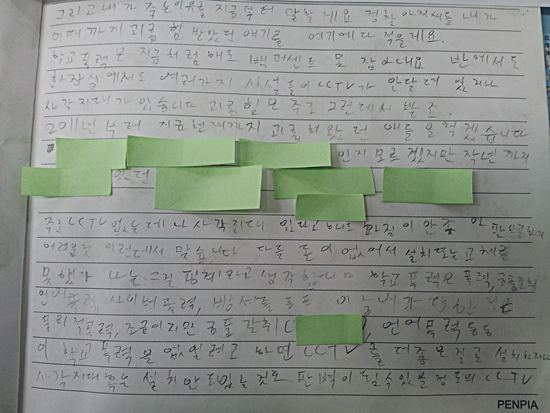 그리고 내가 죽는 이유를 지금부터 말할게요 경찰아저씨들 내가
이때까지 괴롭힘 받았던 얘기를 여기에다 적을게요.
학교폭력은 지금처럼 해도 백퍼센트 못잡아내요 반에서도
화장실에서도 여러가지 시설들이 CCTV가 안달려 있거나
사각지대가 있습니다 괴롭힘은 주로 그런데서 받죠.
2011년부터 지금현재까지 괴롭혀왔던 애들을 적겠습니다
인지 모르겠지만 작년까지
있던
주로 CCTV 없는데나 사각지대 있다고 해도 화질이 안좋은 판별하기
어려운것 이런데서 맞습니다 다들 돈이 없어서 설치또는 교체를
못했다 나는 그걸 핑계라고 생각합니다 학교폭력은 폭력, 금품갈취
언어폭력 사이버폭력, 빵셔틀 등등 이중 내가 당한것은
물리적폭력, 조금이지만 금품갈취 언어폭력 등등
이 학교폭력을 없앨려고 하면 CCTV를 더좋은걸로 설치하거나
사각지대 혹은 설치 안되있는 것도 판별이 될수있을 정도의 CCTV
PENPIA